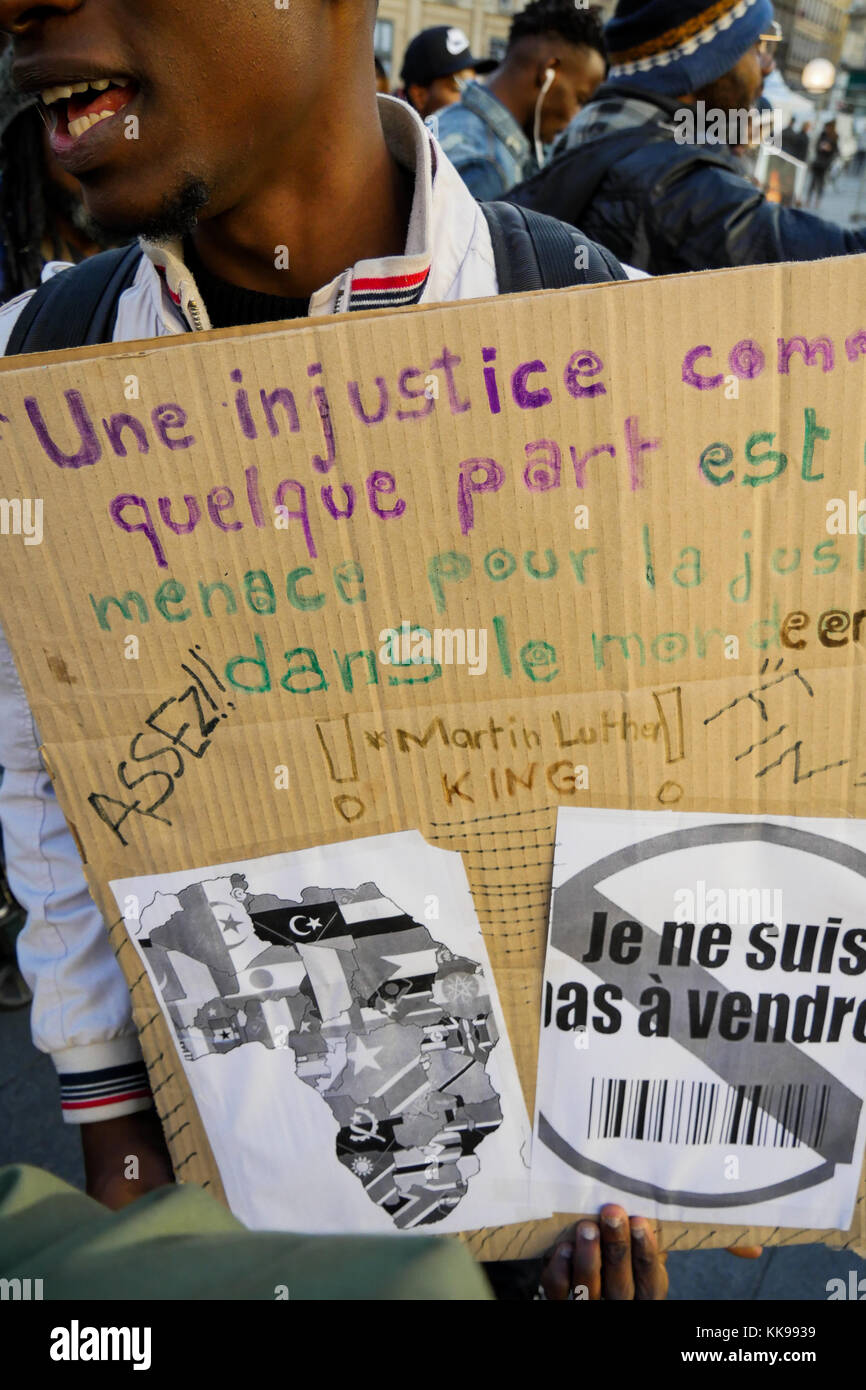 Une injustice comm
quelque part est
menace pour la just
dans le monde
ASSEZ!!
* Martin Luther
KING
Je ne suis
pas à vendre
alamy
Image ID: KK9939
www.alamy.com